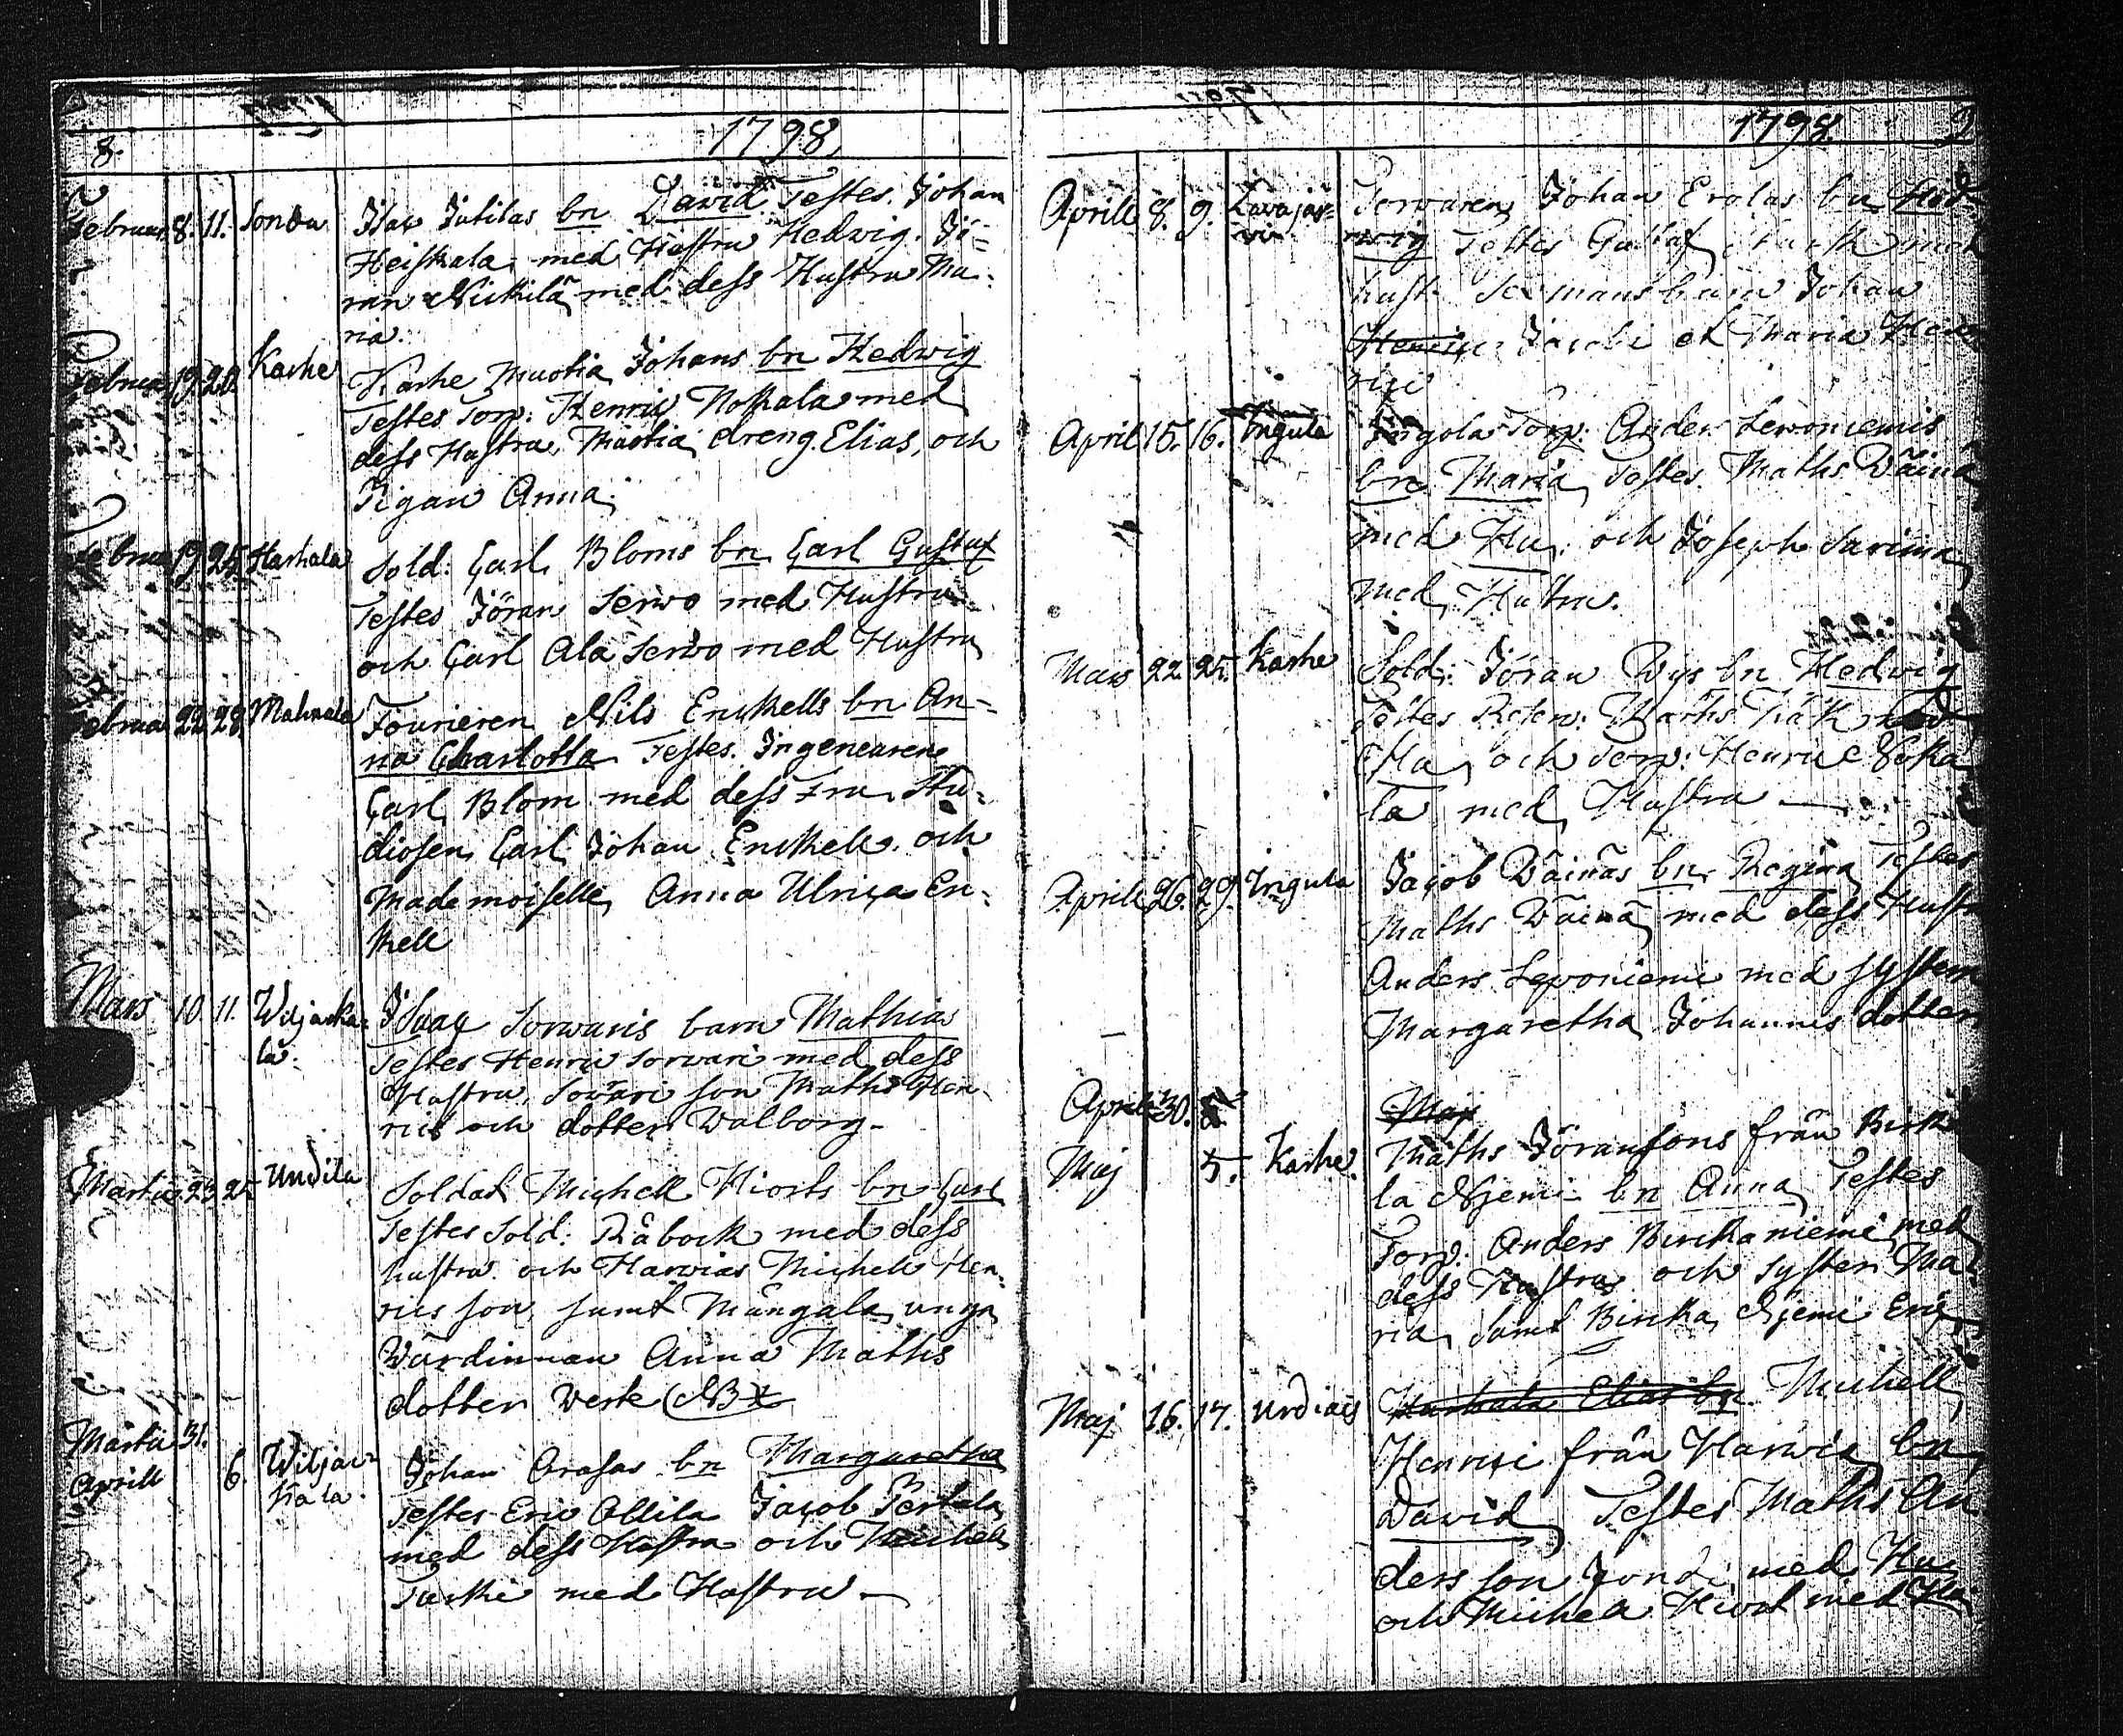 8.
1798
Februar. 8. 11. Jondu Isac Jutilas bn David Testes. Johan
Heiskala med Hustru Hedwig. Jö=
ran Nickilä med dess Hustru Ma=
ria.
Februa 19. 20. Karhe Karhe Muotia Johans bn Hedwig
Testes Torp: Henric Nokkala med
dess Hustru, Muotia dreng Elias, och
Pigan Anna.
Februa 19. 25. Harhala Sold: Carl Bloms bn Carl Gustaf
Testes Jöran Serwo med Hustru
och Carl Ala Serwo med Hustru
Februa 22. 28. Mahnala Fourieren Nils Enckells bn An=
na Charlotta Testes. Ingeneuren
Carl Blom med dess Fru, Stu=
diosen Carl Johan Enckell. och
Mademoiselle Anna Ulrica En=
kell
Mars 10. 11. Wiljacka= Isaac Sorwaris barn Mathias
la. Testes Henric Sorwari med dess
Hustru, Sorvari son Maths Hen=
rics och dotter Walborg.
Martii 23 25 Undila Soldat Michell Hiorts bn Carl
Testes Sold: Råbock med dess
hustru. och Harwias Michell Hen=
rics son, samt Mångala unga
Wärdinnan Anna Maths
dotter Weste (NB
Martii 31.
Aprill 6. Wiljac= Johan Orasas bn Margaretha
kala. Testes Eric Ollila Jacob Pertala
med dess Hustru och Michell
Turkki med Hustru
1798
Aprill 8. 9. Lavajär= Torparen Johan Erolas bn Hed=
vi wig Testes Gustaf med
hust. Johan
Jacobi et Maria Hen
rici
April 15. 16. Ingula Ingola Torp: Anders Lewoniemis
bn Maria, Testes Maths Wäinä
med Hu. och Joseph Sarima
med Hustru.
Mars 22. 25. Karhe Sold: Jöran Wys bn Hedwig
Testes
och Torp: Henric Noka
la med Hustru
Aprill 26. 29. Ingula Jacob Wäinäs bn Regina Testes
Maths Wäinä med dess Hustr
Anders Lewoniemi med system
Margaretha Johannis dotter
Aprill 30.
May
Maj 5. Karhe Maths Jöransons från Birk
la Njemi bn Anna Testes
Torp: Anders Birckaniemi med
dess Hustru och syster Ma
ria, samt Bircka Njemi Eric
Maj 16. 17. Harhala Elias bn Michell
Henrici från Harwia bn
David Testes Maths An
ders son med Hu
och Michell med Hu